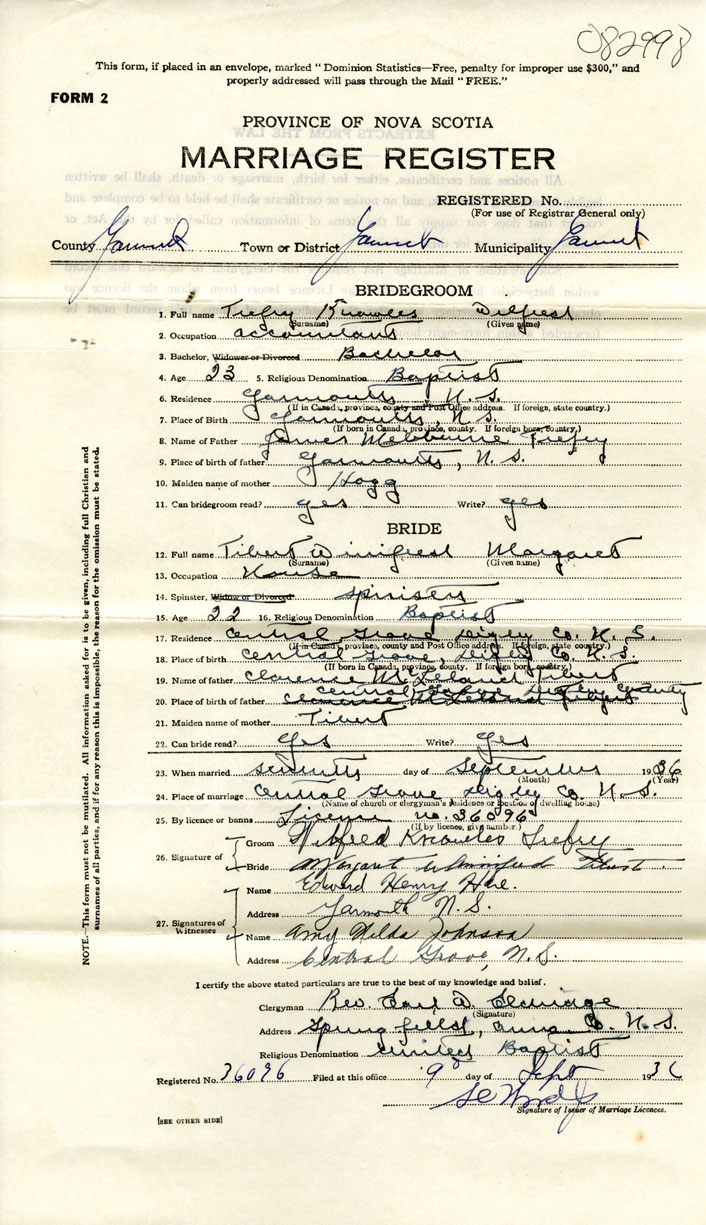 082998
This form, if placed in an envelope, marked "Dominion Statistics—Free, penalty for improper use $300," and
properly addressed will pass through the Mail "FREE."
FORM 2
PROVINCE OF NOVA SCOTIA
MARRIAGE REGISTER
REGISTERED No.
(For use of Registrar General only)
County Town or District Municipality
BRIDEGROOM
1. Full name Trefry Knowles Wilfred
(Surname) (Given name)
2. Occupation accountant
3. Bachelor, Widower or Divorced Bachelor
4. Age 23 5. Religious Denomination Baptist
6. Residence Yarmouth, N. S.
(If in Canada, province, county and Post Office address. If foreign, state country.)
7. Place of Birth Yarmouth, N. S.
(If born in Canada, province, county. If foreign born, country.)
8. Name of Father James Melbourne Trefry
9. Place of birth of father Yarmouth, N. S.
10. Maiden name of mother Hogg
11. Can bridegroom read? yes Write? yes
BRIDE
12. Full name Tibert Winifred Margaret
(Surname) (Given name)
13. Occupation House
14. Spinster, Widow or Divorced spinister
15. Age 22 16. Religious Denomination Baptist
17. Residence Central Grove Digby Co. N. S.
(If in Canada, province, county and Post Office address. If foreign, state country.)
18. Place of birth Central Grove, Digby Co. N. S.
(If born in Canada, province, county. If foreign born, country.)
19. Name of father Clarence McLeland Tibert
20. Place of birth of father Central Grove Digby County
21. Maiden name of mother Tibert
22. Can bride read? yes Write? yes
23. When married seventh day of September 1936
(Month) (Year)
24. Place of marriage Central Grove Digby Co. N. S.
(Name of church or clergyman's residence or location of dwelling house)
25. By licence or banns License no. 36096
(If by licence, give number.)
26. Signature of Groom Wilfred Knowles Trefry
Bride Margaret Winnifred Tibert
27. Signatures of Witnesses Name Edward Henry Hare.
Address Yarmouth N. S.
Name Amy Hilda Johnson
Address Central Grove, N. S.
I certify the above stated particulars are true to the best of my knowledge and belief.
Clergyman Rev. Earl D. Eldridge
(Signature)
Address Springfield, Anna Co. N. S.
Religious Denomination United Baptist
Registered No. 36096 Filed at this office 9th day of Sept 1936
Signature of Issuer of Marriage Licences.
[SEE OTHER SIDE]
NOTE.—This form must not be mutilated. All information asked for is to be given, including full Christian and
surnames of all parties, and if for any reason this is impossible, the reason for the omission must be stated.